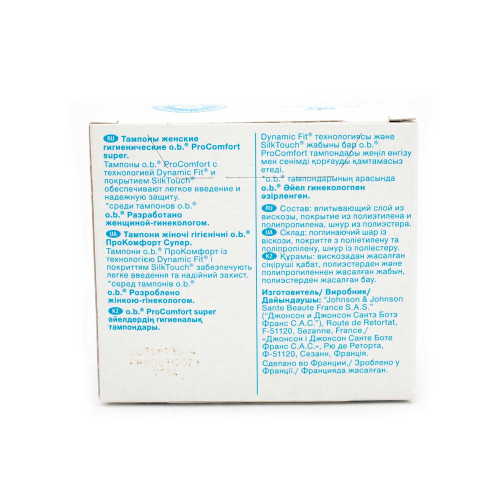 RU Тампоны женские
гигиенические o.b.® ProComfort
super.
Тампоны o.b.® ProComfort с
технологией Dynamic Fit® и
покрытием SilkTouch®
обеспечивают легкое введение и
надежную защиту.
*среди тампонов o.b.®
o.b.® Разработано
женщиной-гинекологом.
UA Тампони жіночі гігієнічні o.b.®
ПроКомфорт Супер.
Тампони o.b.® ПроКомфорт із
технологією Dynamic Fit® і
покриттям SilkTouch® забезпечують
легке введення та надійний захист.
*серед тампонів o.b.®
o.b.® Розроблено
жінкою-гінекологом.
KZ o.b.® ProComfort super
әйелдердің гигиеналық
тампондары.
Dynamic Fit® технологиясы және
SilkTouch® жабыны бар o.b.®
ProComfort тампондары жеңіл енгізу
мен сенімді қорғауды қамтамасыз
етеді.
*o.b.® тампондарының арасында
o.b.® Әйел гинекологпен
әзірленген.
RU Состав: впитывающий слой из
вискозы, покрытие из полиэтилена и
полипропилена, шнур из полиэстера.
UA Склад: поглинаючий шар із
віскози, покриття з поліетилену та
поліпропілену, шнур із поліестеру.
KZ Құрамы: вискозадан жасалған
сіңіруші қабат, полиэтиленмен және
полипропиленнен жасалған жабын,
полиэстерден жасалған бау.
Изготовитель/ Виробник/
Дайындаушы: "Johnson & Johnson
Sante Beaute France S.A.S."
("Джонсон и Джонсон Сантэ Ботэ
Франс С.А.С."), Route de Retortat,
F-51120, Sezanne, France./
«Джонсон і Джонсон Санте Боте
Франс С.А.С.», Рю де Реторта,
F-51120, Сезанн, Франція.
Сделано во Франции./ Зроблено у
Франції./ Францияда жасалған.